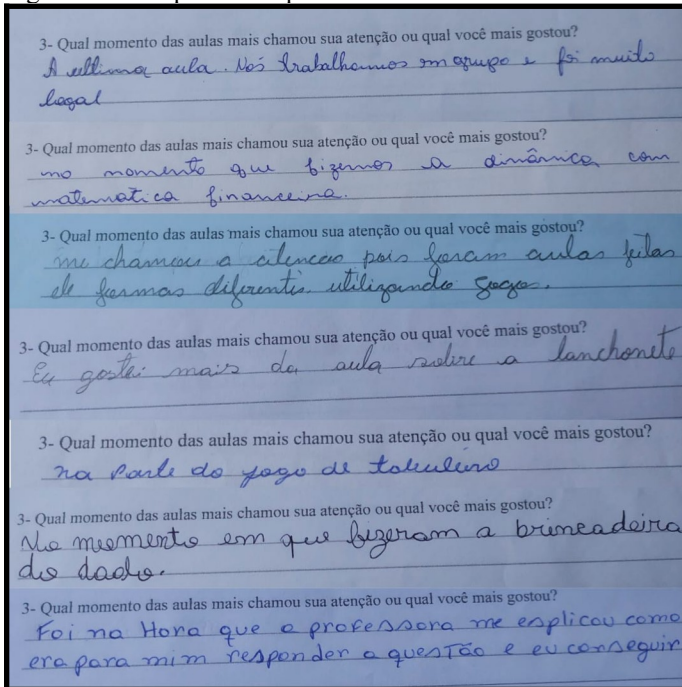 3- Qual momento das aulas mais chamou sua atenção ou qual você mais gostou?
A ultima aula. Nós trabalhamos em grupo e foi muito
legal
3- Qual momento das aulas mais chamou sua atenção ou qual você mais gostou?
no momento que fizemos a dinâmica com
matematica financeira.
3- Qual momento das aulas mais chamou sua atenção ou qual você mais gostou?
me chamou a atencao pois foram aulas feitas
de formas diferentis utilizando gogo.
3- Qual momento das aulas mais chamou sua atenção ou qual você mais gostou?
Eu gostei mais da aula sobre a lanchonete
3- Qual momento das aulas mais chamou sua atenção ou qual você mais gostou?
na Parte do jogo de
3- Qual momento das aulas mais chamou sua atenção ou qual você mais gostou?
No momento em que fizeram a brincadeira
do dado.
3- Qual momento das aulas mais chamou sua atenção ou qual você mais gostou?
Foi na Hora que a professora me esplicou como
era para mim responder a questão e eu conseguir